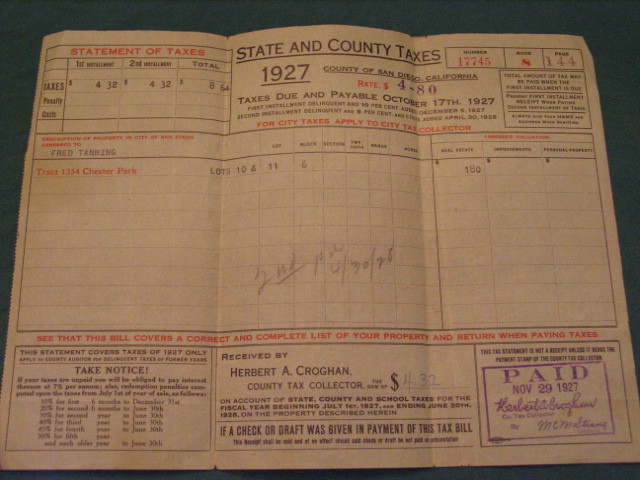 STATEMENT OF TAXES
1st INSTALLMENT 2nd INSTALLMENT TOTAL
TAXES $ 4 32 $ 4 32 $ 8 64
Penalty
Costs
STATE AND COUNTY TAXES
1927 COUNTY OF SAN DIEGO, CALIFORNIA
RATE, $ 4-80
TAXES DUE AND PAYABLE OCTOBER 17TH. 1927
FIRST INSTALLMENT DELINQUENT AND 10 PER CENT. ADDED DECEMBER 5, 1927
SECOND INSTALLMENT DELINQUENT AND 5 PER CENT. AND COSTS ADDED APRIL 30, 1928
FOR CITY TAXES APPLY TO CITY TAX COLLECTOR
NUMBER BOOK PAGE
17745 8 144
TOTAL AMOUNT OF TAX MAY
BE PAID WHEN THE
FIRST INSTALLMENT IS DUE
PRESENT FIRST INSTALLMENT
RECEIPT WHEN PAYING
SECOND INSTALLMENT OF TAXES
ALWAYS GIVE YOUR NAME AND
ADDRESS WHEN WRITING
DESCRIPTION OF PROPERTY IN CITY OF SAN DIEGO
ASSESSED TO
FRED TANKING
LOT BLOCK SECTION RANGE ACRES
ASSESSED VALUATION
REAL ESTATE IMPROVEMENTS PERSONAL PROPERTY
Tract 1354 Chester Park LOTS 10 & 11 6 180
SEE THAT THIS BILL COVERS A CORRECT AND COMPLETE LIST OF YOUR PROPERTY AND RETURN WHEN PAYING TAXES
THIS STATEMENT COVERS TAXES OF 1927 ONLY
APPLY TO COUNTY AUDITOR FOR DELINQUENT TAXES OF FORMER YEARS
TAKE NOTICE!
If your taxes are unpaid you will be obliged to pay interest
thereon at 7% per annum; also, redemption penalties com-
puted upon the taxes from July 1st of year of sale, as follows:
10% for first 6 months to December 31st
20% for second 6 months to June 30th
30% for second year to June 30th
40% for third year to June 30th
45% for fourth year to June 30th
50% for fifth year
and each older year to June 30th
RECEIVED BY
HERBERT A. CROGHAN,
COUNTY TAX COLLECTOR, THE SUM OF $ 4.32
ON ACCOUNT OF STATE, COUNTY AND SCHOOL TAXES FOR THE
FISCAL YEAR BEGINNING JULY 1ST, 1927, AND ENDING JUNE 30TH,
1928, ON THE PROPERTY DESCRIBED HEREIN
IF A CHECK OR DRAFT WAS GIVEN IN PAYMENT OF THIS TAX BILL
This Receipt shall be void and of no effect should said check or draft be not paid on presentation
THIS TAX STATEMENT IS NOT A RECEIPT UNLESS IT BEARS THE
PAYMENT STAMP OF THE COUNTY TAX COLLECTOR
PAID
NOV 29 1927
Herbert A Croghan
Co. Tax Collector
By